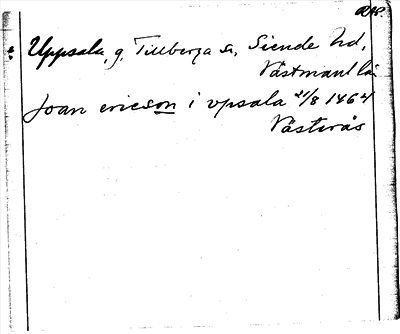 RAP.
Uppsala, g. Tillberga sn, Siende hd,
Västmanl län
Joan ericson i vpsala 21/8 1464
Västerås